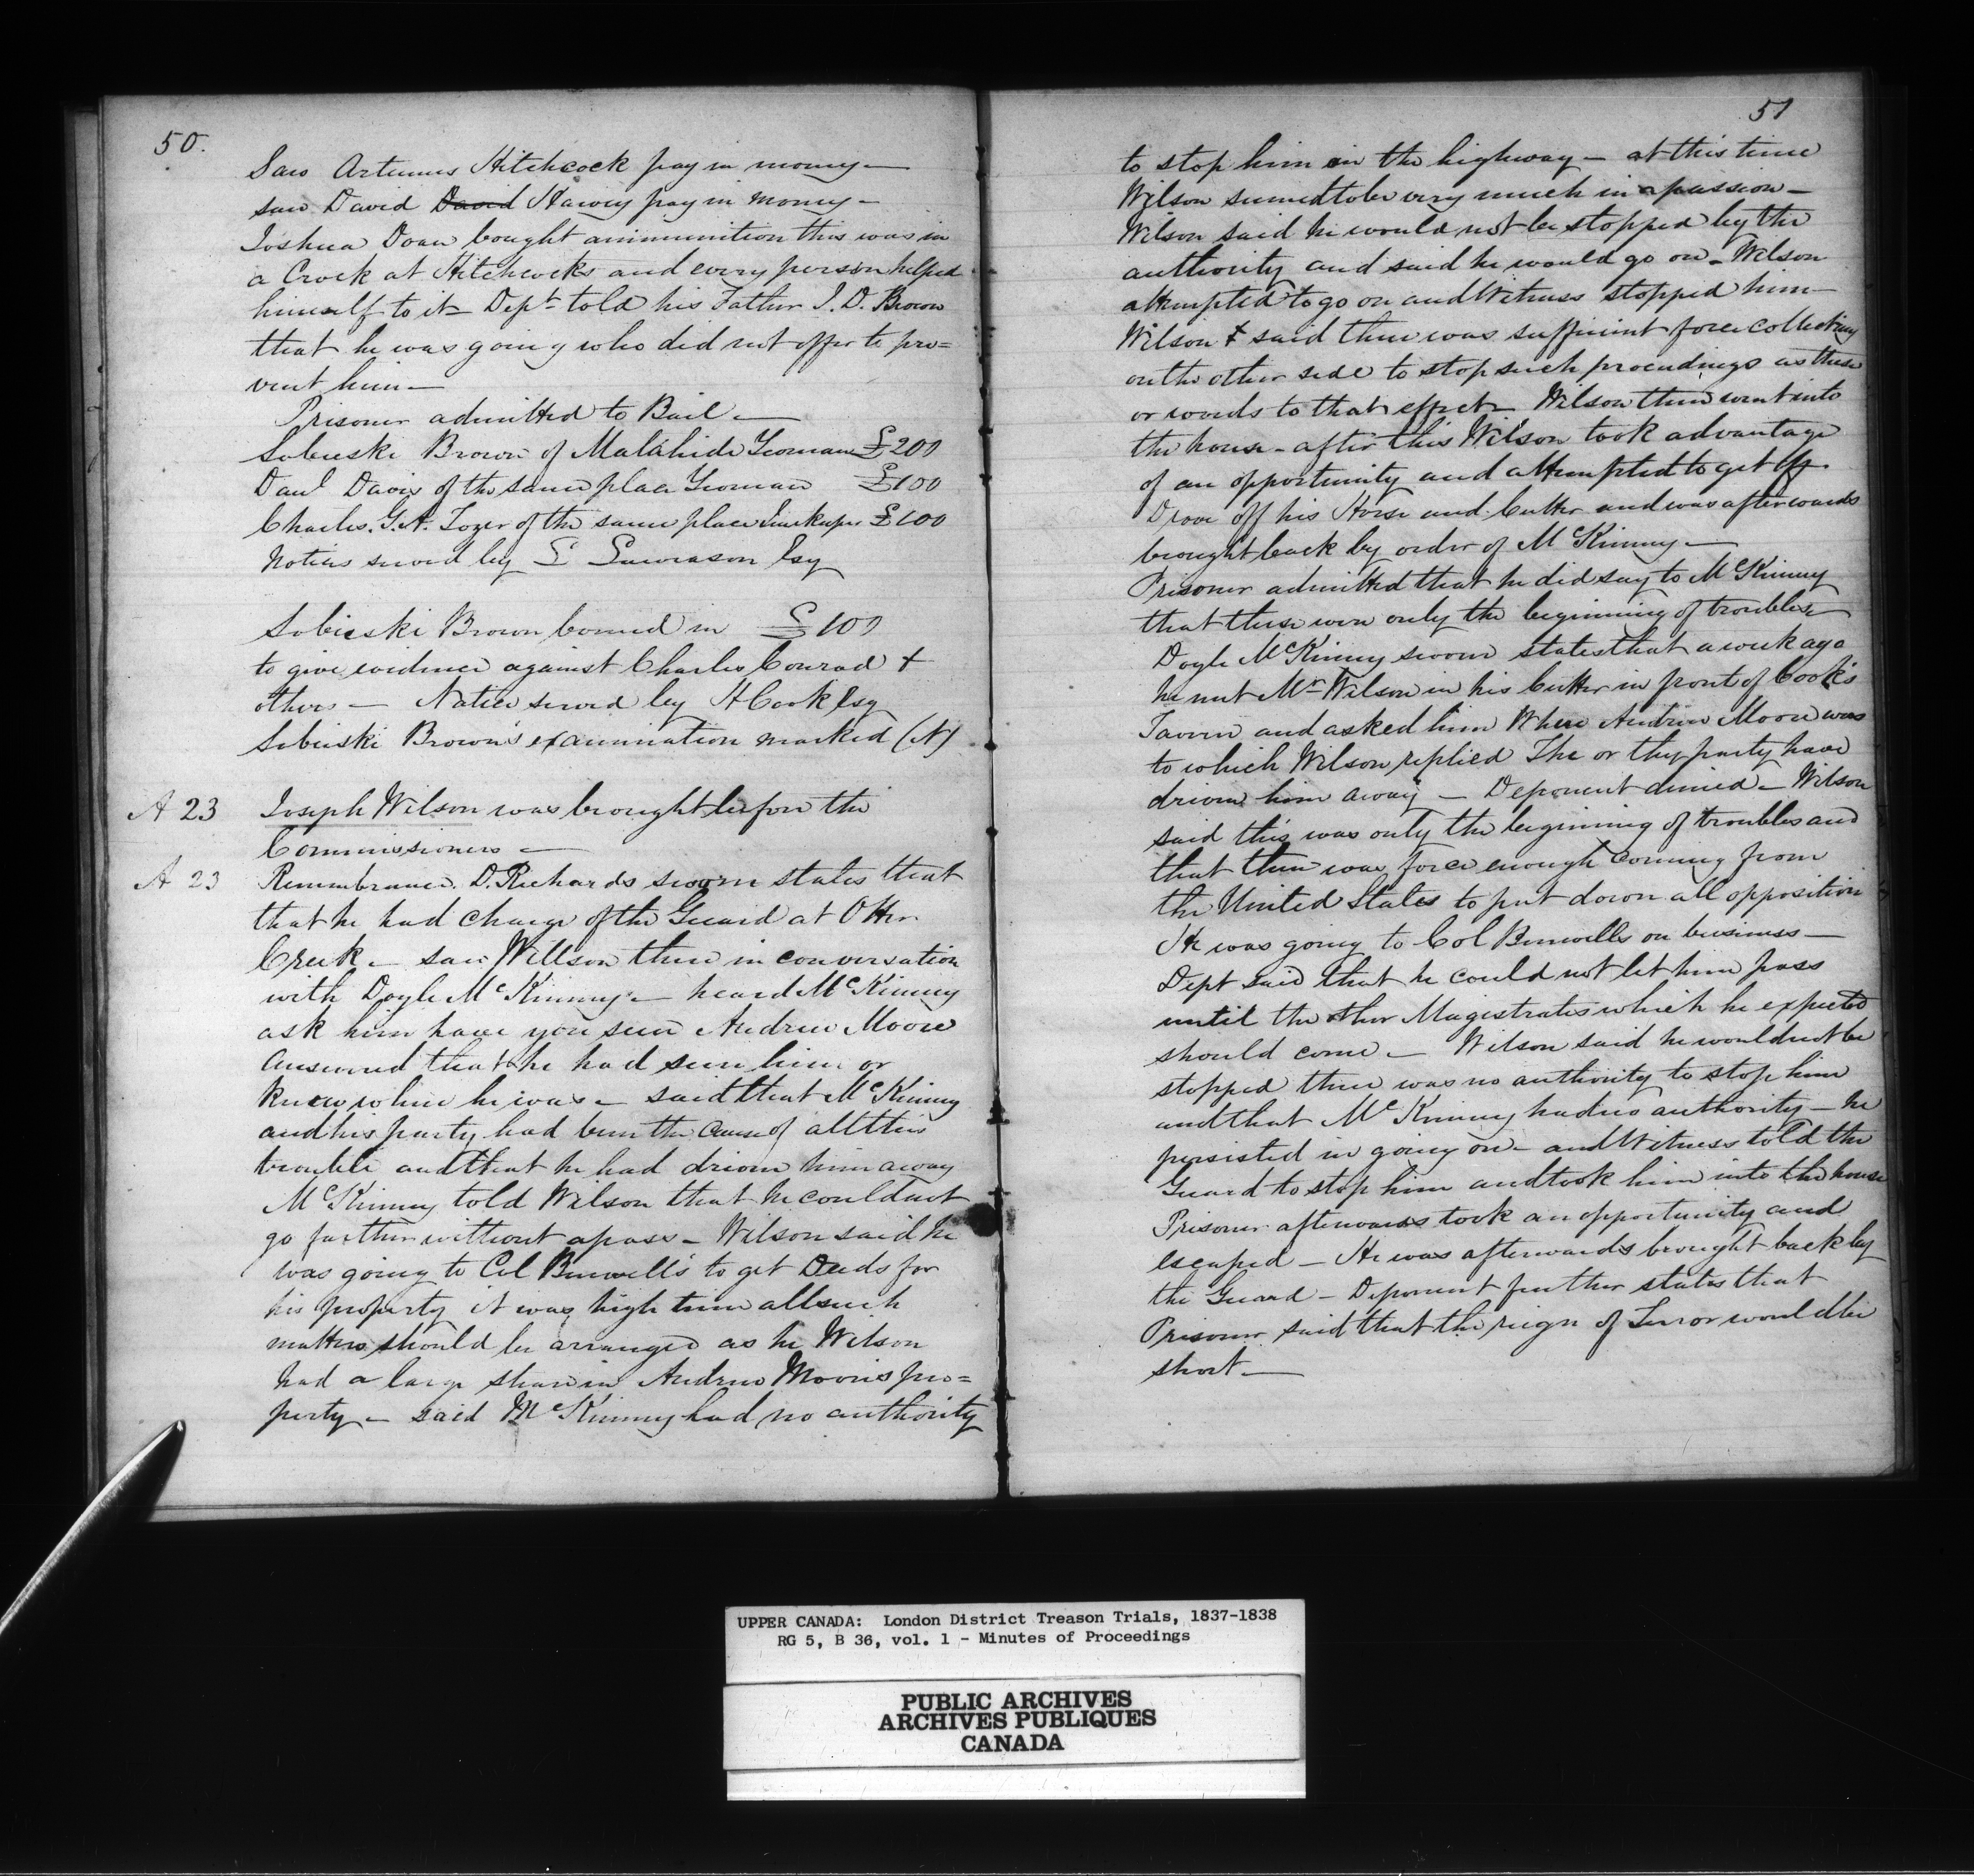 50.
Saw Artemus Hitchcock pay in money —
saw David David Harvey pay in money —
Joshua Doan bought ammunition this was in
a Crock at Hitchcocks and every person helped
himself to it — Dept told his Father J. D. Brown
that he was going who did not offer to pre=
vent him —
Prisoner admitted to Bail —
Sobieski Brown of Malahide Yeoman £200
Danl Davis of the same place Yeoman £100
Charles. G. A. Tozer of the same place Innkeeper £100
Notices served by L Lawrason Esq
Sobieski Brown bound in £100
to give evidence against Charles Conrad +
others — Notice served by H Cook Esq
Sobieski Brown's examination marked (N)
A 23 Joseph Wilson was brought before the
Commissioners —
A 23 Remembrance. D. Richards sworn states that
that he had charge of the Guard at Otter
Creek — saw Willson there in conversation
with Doyle McKinney — heard McKinney
ask him have you seen Andrew Moore
answered that he had seen him or
knew where he was — said that McKinney
and his party had been the cause of all this
trouble and that he had driven him away
McKinney told Wilson that he could not
go further without a pass — Wilson said he
was going to Col Burwell's to get Deeds for
his property it was high time all such
matters should be arranged as he Wilson
had a large share in Andrew Moores pro=
perty — said McKinney had no authority
51
to stop him in the highway — at this time
Wilson seemed to be very much in a passion —
Wilson said he would not be stopped by the
authority and said he would go on — Wilson
attempted to go on and Witness stopped him —
Wilson + said there was sufficient force collecting
on the other side to stop such proceedings as these
or words to that effect — Wilson then went into
the house — after this Wilson took advantage
of an opportunity and attempted to get off
Drove off his Horse and Cutter and was afterwards
brought back by order of McKinney —
Prisoner admitted that he did say to McKinney
that these were only the beginning of troubles —
Doyle McKinney sworn states that a week ago
he met Mr Wilson in his Cutter in front of Cook's
Tavern and asked him Where Andrew Moore was
to which Wilson replied The or thy party have
driven him away — Deponent denied — Wilson
said this was only the beginning of troubles and
that there was force enough coming from
the United States to put down all opposition
He was going to Col Burwells on business —
Dept said that he could not let him pass
until the other Magistrates which he expected
should come — Wilson said he would not be
stopped there was no authority to stop him
and that McKinney had no authority — he
persisted in going on — and Witness told the
Guard to stop him and took him into the house
Prisoner afterwards took an opportunity and
escaped — He was afterwards brought back by
the Guard — Deponent further states that
Prisoner said that the reign of Terror would be
short —
UPPER CANADA: London District Treason Trials, 1837-1838
RG 5, B 36, vol. 1 - Minutes of Proceedings
PUBLIC ARCHIVES
ARCHIVES PUBLIQUES
CANADA